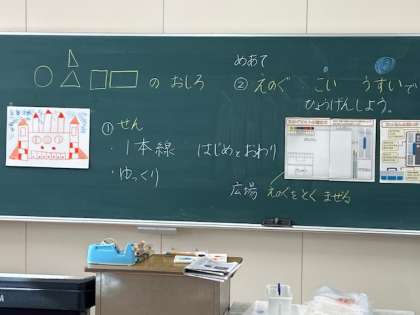 の おしろ
① せん
・1本線 はじめとおわり
・ゆっくり
めあて
② えのぐ こい うすいで
ひょうげんしよう。
広場 えのぐをとく まぜる